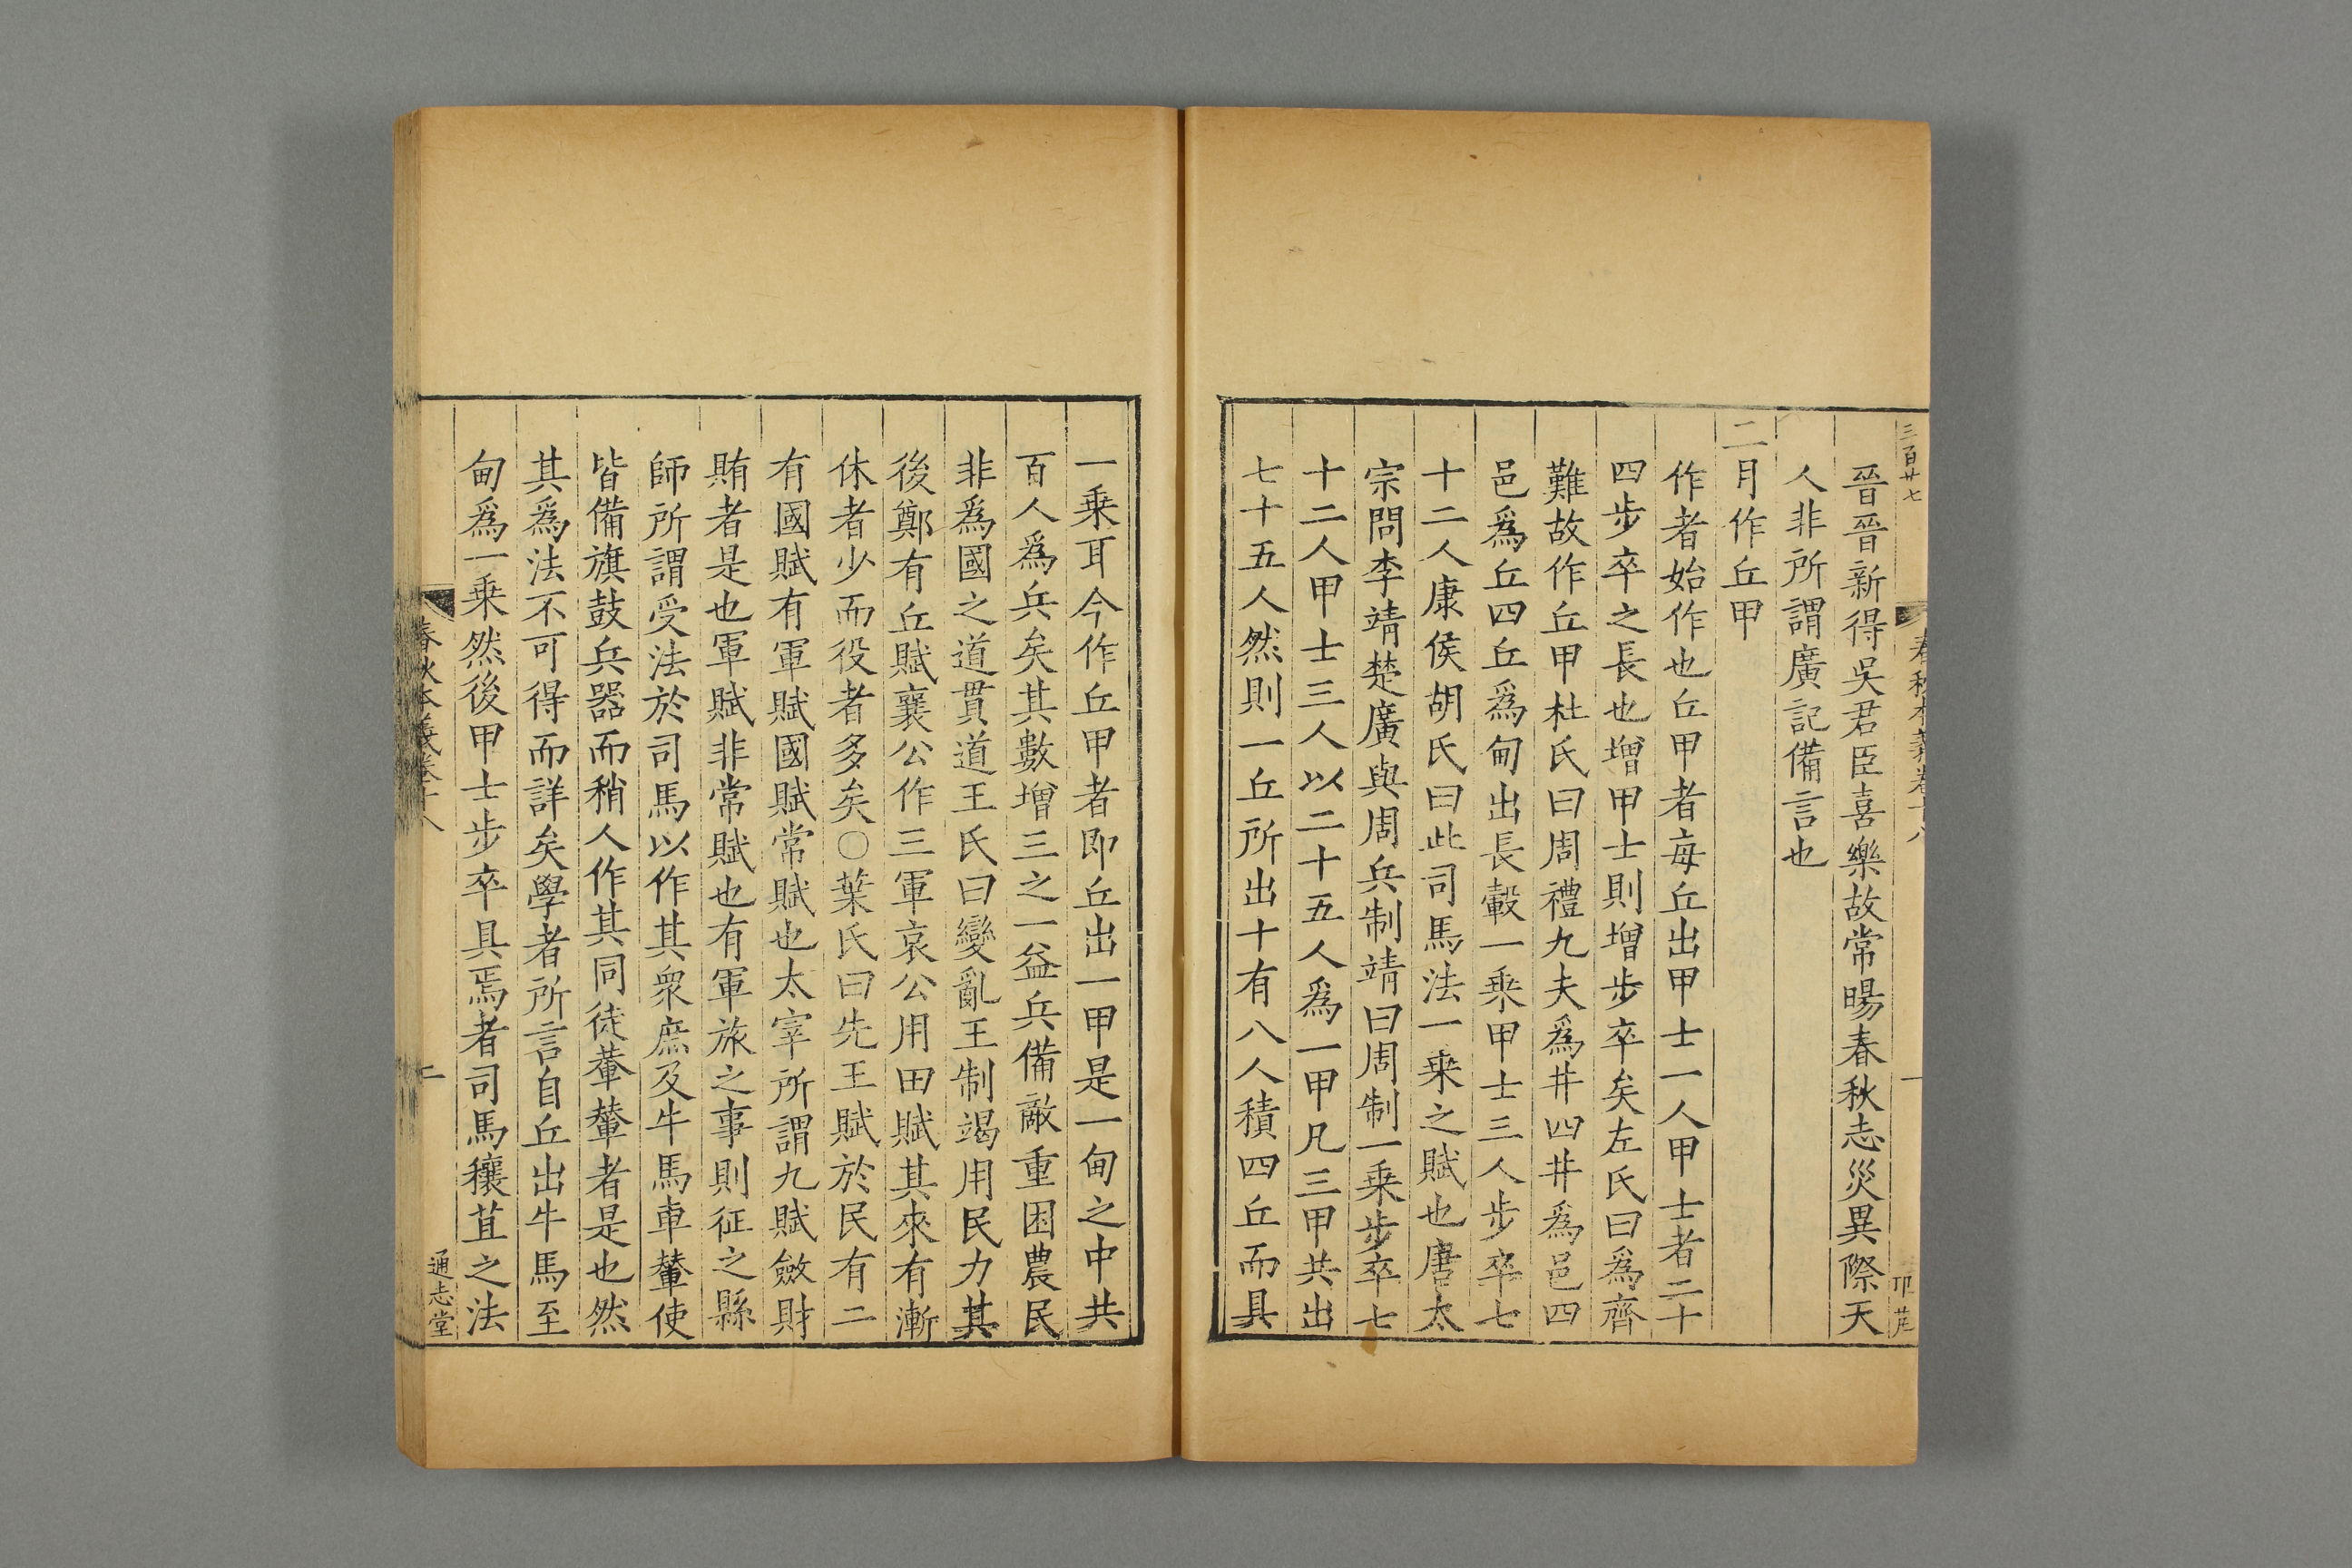 三百廿七
春秋本義卷十八
晉晉新得吳君臣喜樂故常暘春秋志災異際天
人非所謂廣記備言也
二月作丘甲
作者始作也丘甲者每丘出甲士一人甲士者二十
四步卒之長也增甲士則增步卒矣左氏曰爲齊
難故作丘甲杜氏曰周禮九夫爲井四井爲邑四
邑爲丘四丘爲甸出長轂一乘甲士三人步卒七
十二人康侯胡氏曰此司馬法一乘之賦也唐太
宗問李靖楚廣與周兵制靖曰周制一乘步卒七
十二人甲士三人以二十五人爲一甲凡三甲共出
七十五人然則一丘所出十有八人積四丘而具
一乘耳今作丘甲者即丘出一甲是一甸之中共
百人爲兵矣其數增三之一益兵備敵重困農民
非爲國之道貫道王氏曰變亂王制竭用民力其
後鄭有丘賦襄公作三軍哀公用田賦其來有漸
休者少而役者多矣○葉氏曰先王賦於民有二
有國賦有軍賦國賦常賦也太宰所謂九賦斂財
賄者是也軍賦非常賦也有軍旅之事則征之縣
師所謂受法於司馬以作其衆庶及牛馬車輦使
皆備旗鼓兵器而稍人作其同徒輂輦者是也然
其爲法不可得而詳矣學者所言自丘出牛馬至
甸爲一乘然後甲士步卒具焉者司馬穰苴之法
春秋本義卷十八
通志堂